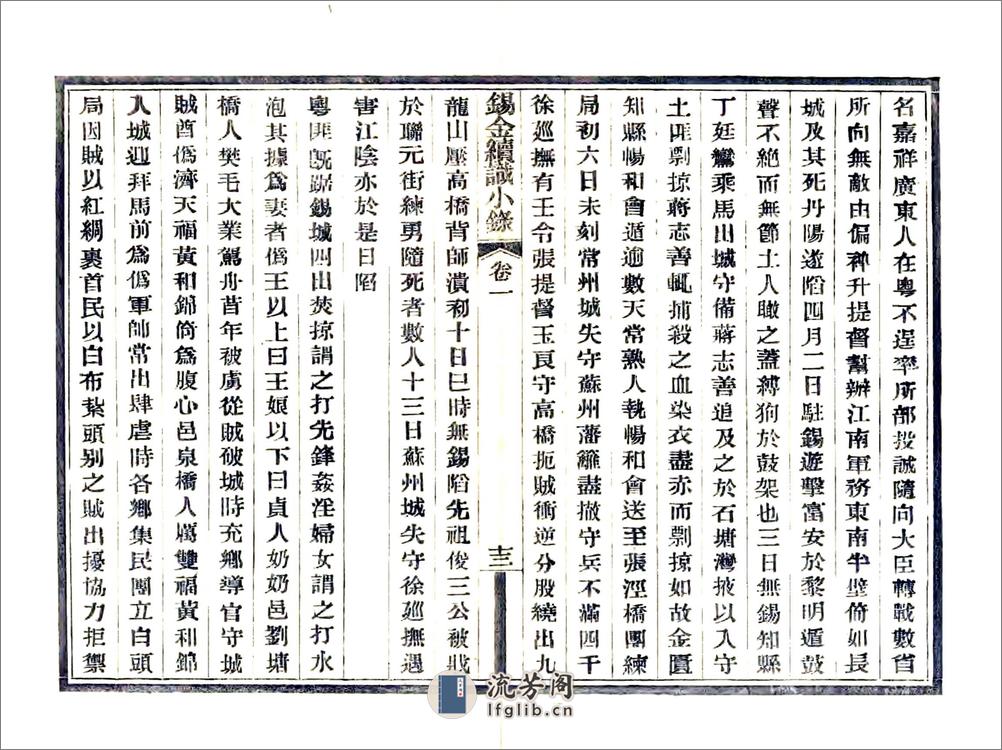 名嘉祥廣東人在粵不逞率所部投誠隨向大臣轉戰數省
所向無敵由偏裨升提督幫辦江南軍務東南半壁倚如長
城及其死丹陽遂陷四月二日駐錫遊擊富安於黎明遁鼓
聲不絕而無節土人瞰之蓋縛狗於鼓架也三日無錫知縣
丁廷鸞乘馬出城守備蔣志善追及之於石塘灣掖以入守
土匪剽掠蔣志善輒捕殺之血染衣盡赤而剽掠如故金匱
知縣暢和會遁逾數天常熟人執暢和會送至張涇橋團練
局初六日未刻常州城失守蘇州藩籬盡撤守兵不滿四千
徐廵撫有壬令張提督玉良守高橋扼賊衝逆分股繞出九
錫金續識小錄
卷一
十三
龍山壓高橋背師潰初十日巳時無錫陷先祖俊三公被戕
於聯元街練勇隨死者數人十三日蘇州城失守徐廵撫遇
害江陰亦於是日陷
粵匪旣踞錫城四出焚掠謂之打先鋒姦淫婦女謂之打水
泡其據爲妻者僞王以上曰王娘以下曰貞人奶奶邑劉塘
橋人樊毛大業駕舟昔年被虜從賊破城時充鄉導官守城
賊酋僞濟天福黃和錦倚爲腹心邑泉橋人厲雙福黃和錦
入城迎拜馬前爲僞軍帥常出肆虐時各鄉集民團立白頭
局因賊以紅綢裹首民以白布紮頭别之賊出擾協力拒禦
流芳阁
lfglib.cn